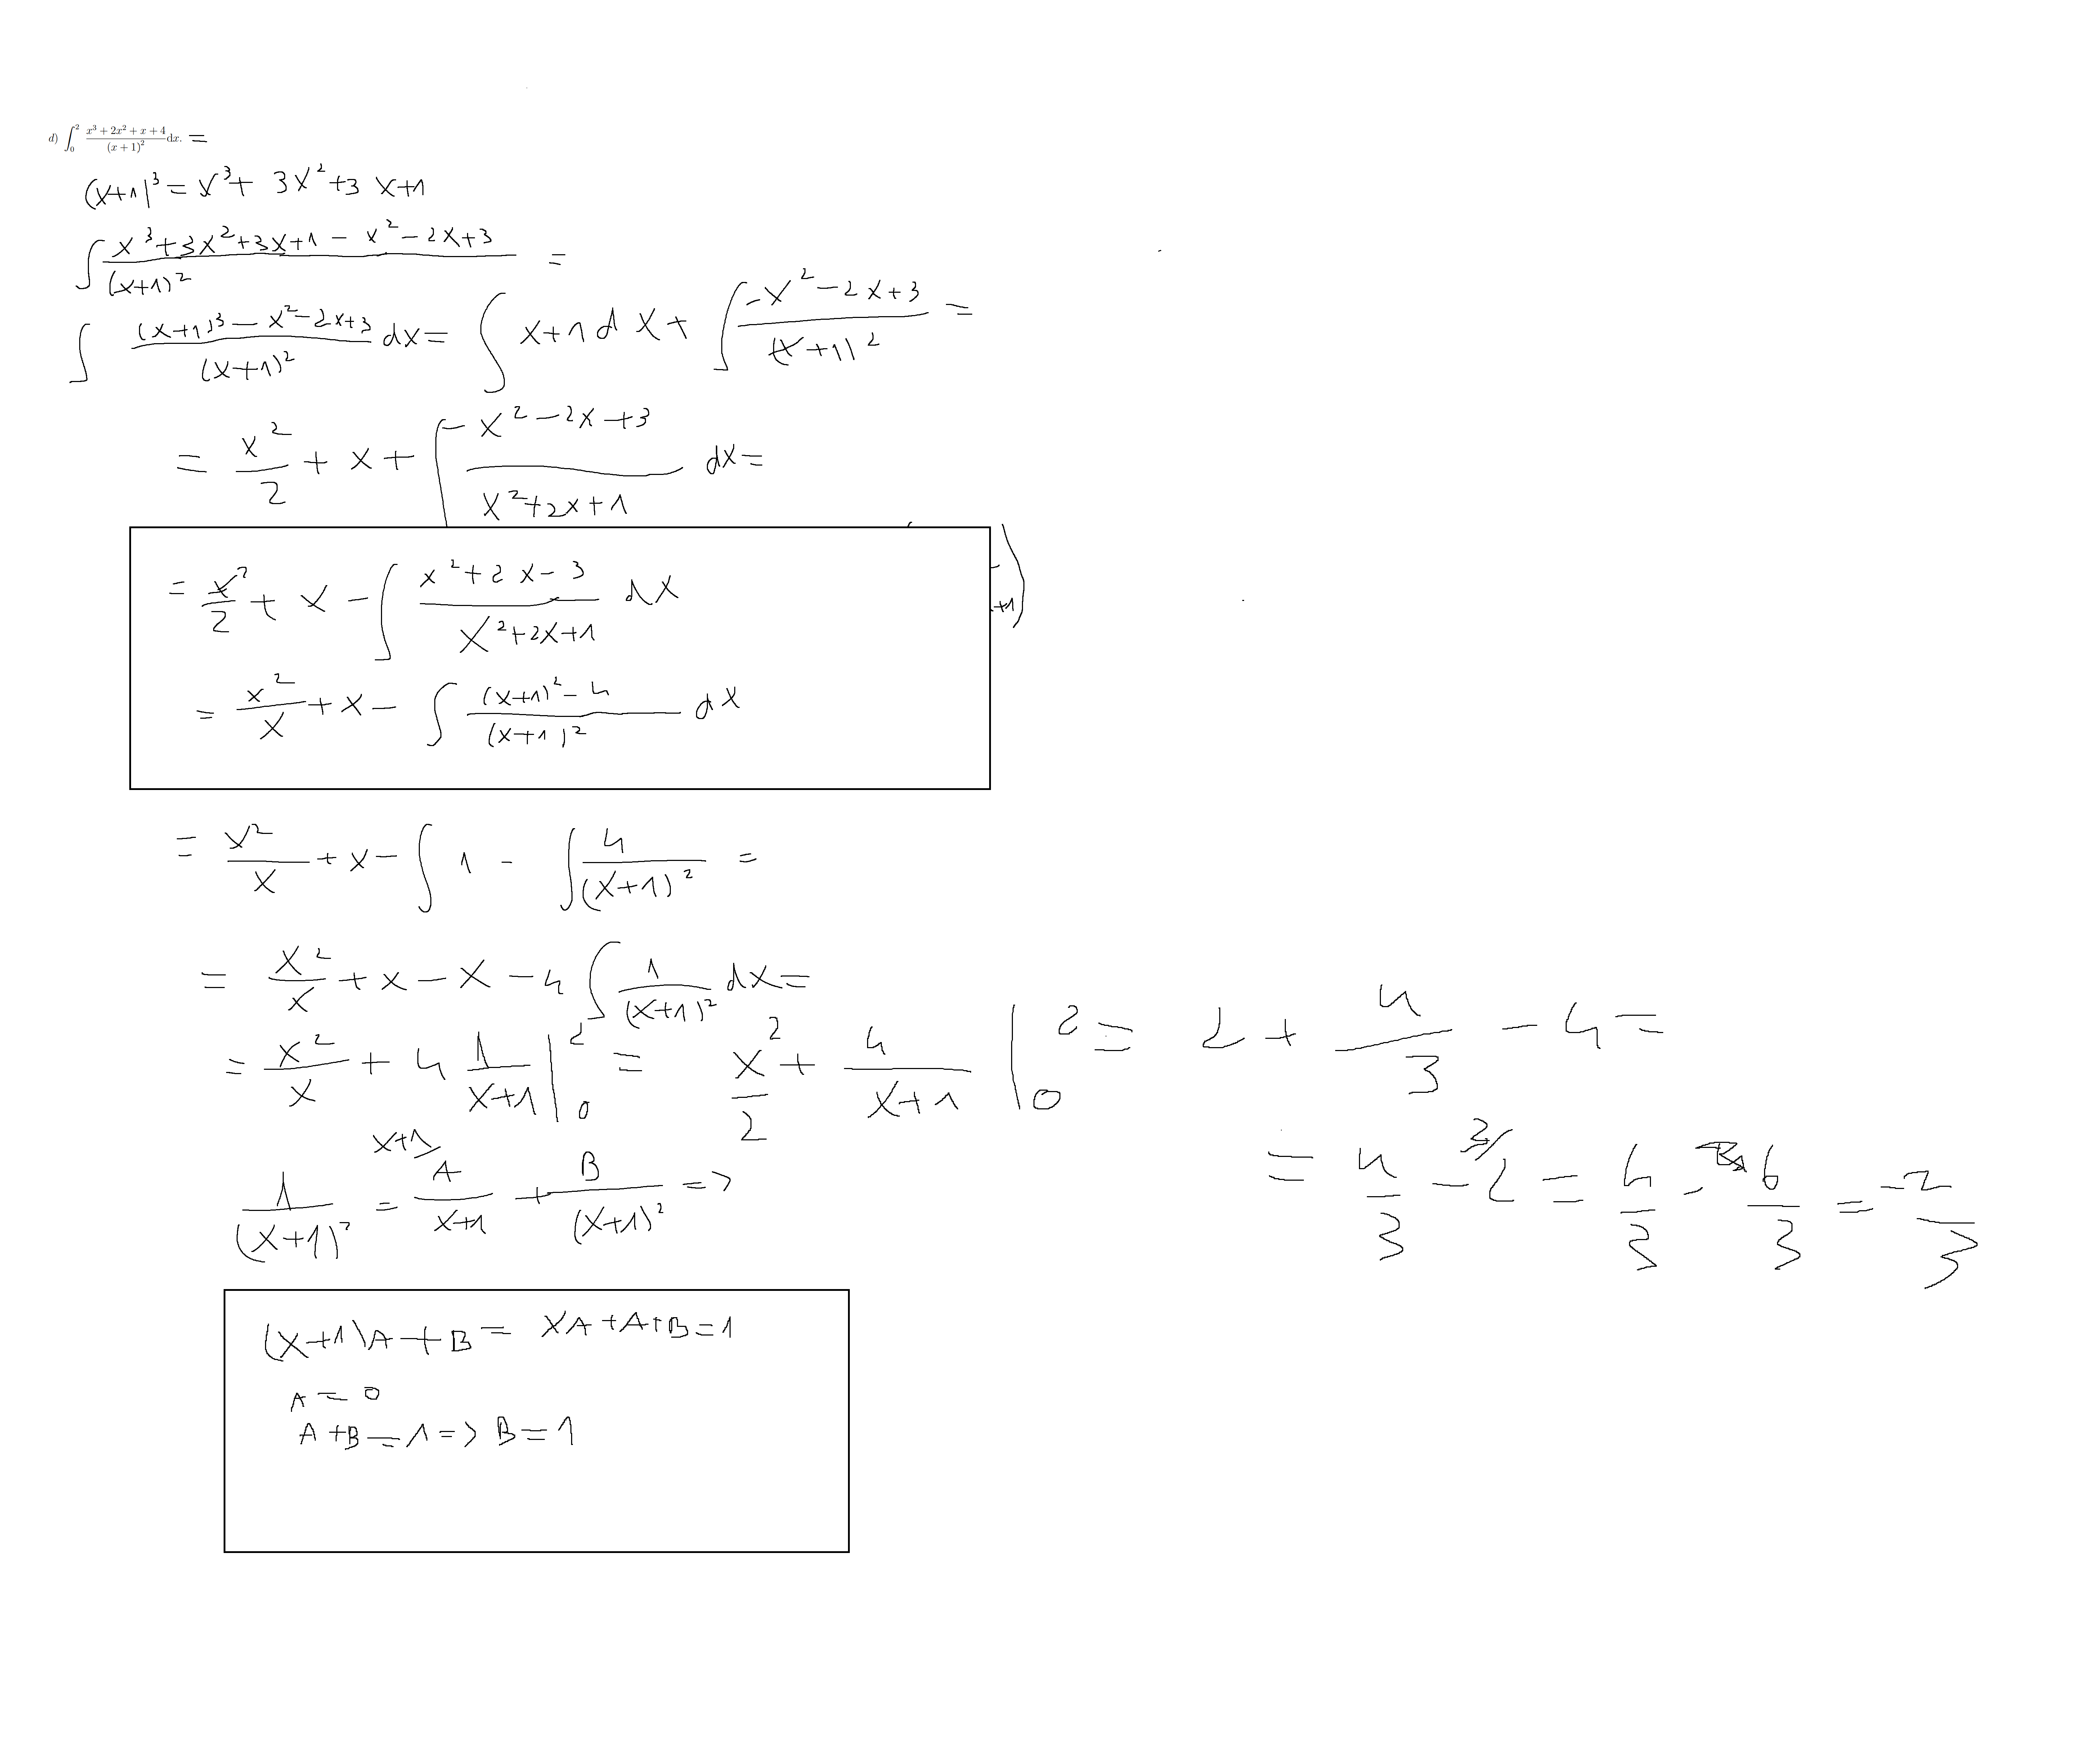 d) ∫₀² (x³ + 2x² + x + 4)/(x + 1)² dx. =
(x+1)³ = x³ + 3x² + 3x + 1
∫ (x³ + 3x² + 3x + 1 − x² − 2x + 3)/(x+1)² =
∫ ((x+1)³ − x² − 2x + 3)/(x+1)² dx = ∫ x+1 dx + ∫ (−x² − 2x + 3)/(x+1)² =
= x²/2 + x + ∫ (−x² − 2x + 3)/(x² + 2x + 1) dx =
= x²/2 + x − ∫ (x² + 2x − 3)/(x² + 2x + 1) dx
+1)
= x²/x + x − ∫ ((x+1)² − 4)/(x+1)² dx
= x²/x + x − ∫ 1 − ∫ 4/(x+1)² =
= x²/x + x − x − 4 ∫ 1/(x+1)² dx =
= x²/x + 4 1/(x+1) |₀² = x²/2 + 4/(x+1) |₀² = 2 + 4/3 − 4 =
= 4/3 − 2 = 4/3 − 6/3 = −2/3
x+1/
1/(x+1)² = A/(x+1) + B/(x+1)² =>
(x+1)A + B = xA + A + B = 1
A = 0
A + B = 1 => B = 1